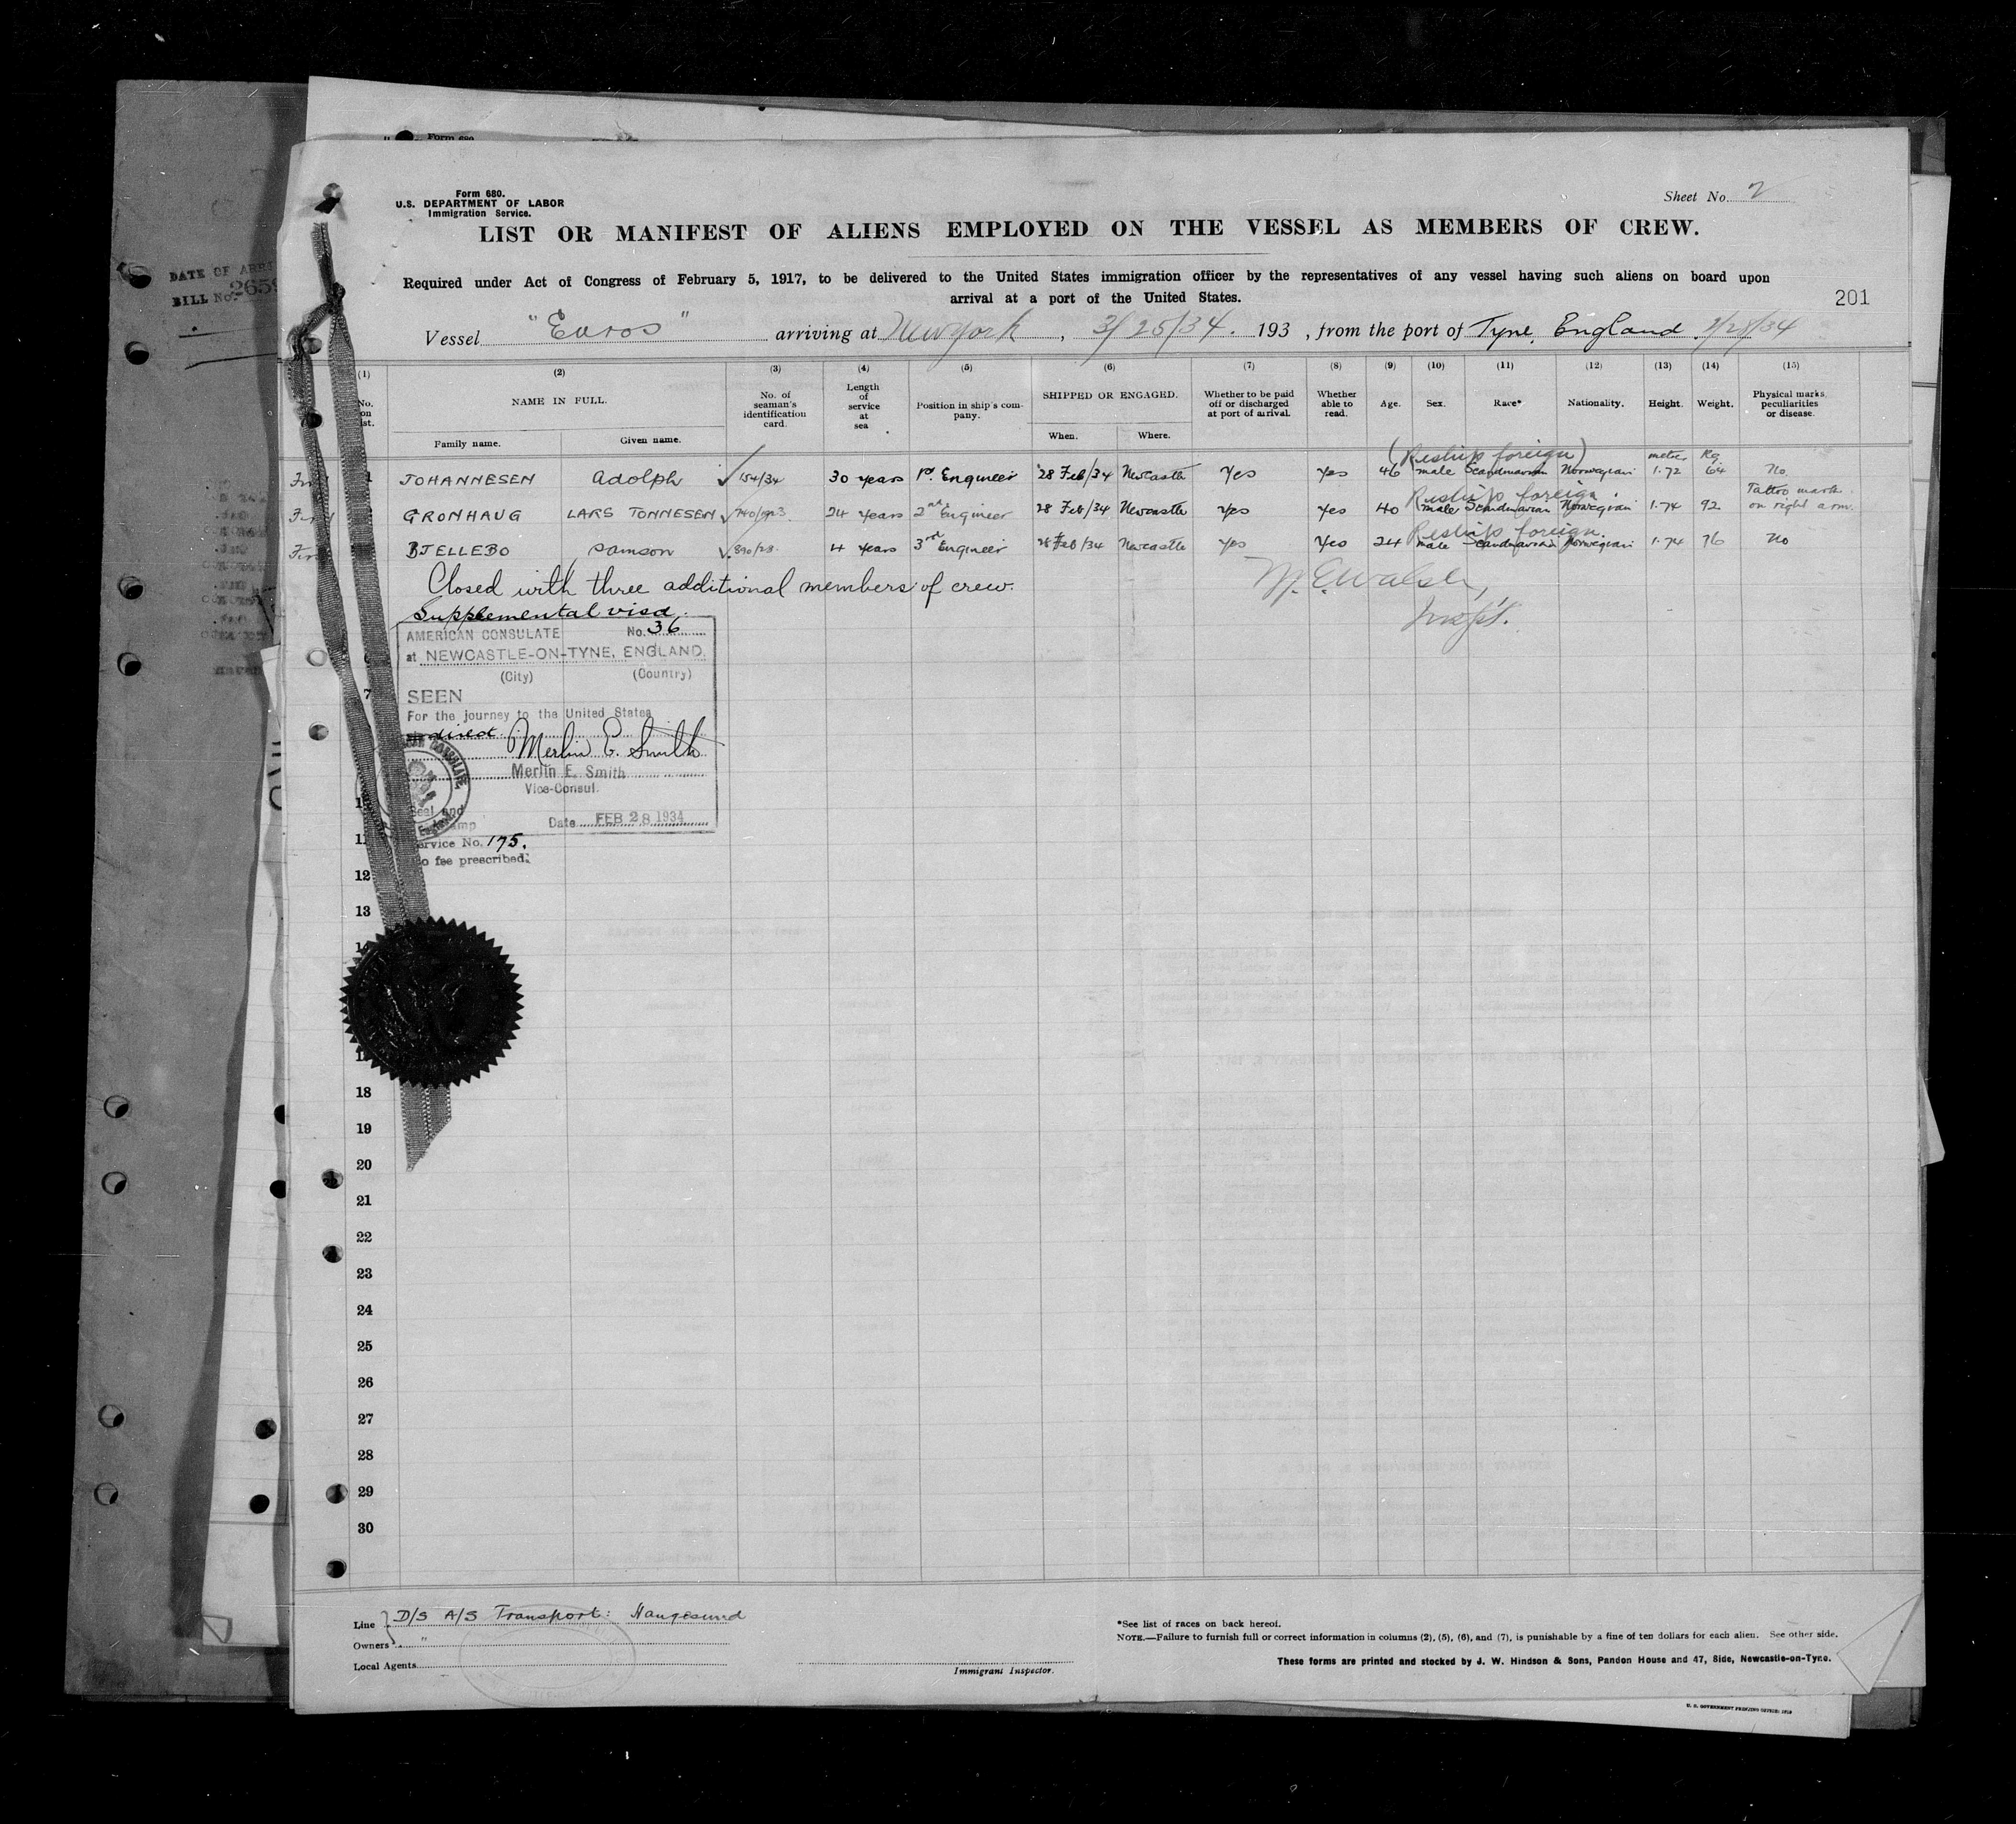 Form 680.
U.S. DEPARTMENT OF LABOR
Immigration Service.
Sheet No. 2
LIST OR MANIFEST OF ALIENS EMPLOYED ON THE VESSEL AS MEMBERS OF CREW.
Required under Act of Congress of February 5, 1917, to be delivered to the United States immigration officer by the representatives of any vessel having such aliens on board upon
arrival at a port of the United States.
201
DATE OF ARRI
BILL No. 2659
Vessel "Euros" arriving at New York, 3/25/34. 193 , from the port of Tyne, England. 2/28/34
(1) (2) (3) (4) (5) (6) (7) (8) (9) (10) (11) (12) (13) (14) (15)
No. on list. NAME IN FULL. Family name. Given name. No. of seaman's identification card. Length of service at sea Position in ship's company. SHIPPED OR ENGAGED. When. Where. Whether to be paid off or discharged at port of arrival. Whether able to read. Age. Sex. Race* Nationality. Height. Weight. Physical marks, peculiarities or disease.
(Reship foreign) metres Kg.
1 JOHANNESEN Adolph 154/34 30 years 1st. Engineer 28 Feb/34 Newcastle Yes Yes 46 male Scandinavian Norwegian 1.72 64 No
Reship foreign. Tattoo mark
GRONHAUG LARS TONNESEN 24 years 2nd Engineer 28 Feb/34 Newcastle Yes Yes 40 male Scandinavian Norwegian 1.74 92 on right arm.
Reship foreign.
BJELLEBO Samson 890/28 4 years 3rd Engineer 28 Feb/34 Newcastle Yes Yes 24 male Scandinavian Norwegian 1.74 76 No
Closed with three additional members of crew.
M. E. Walsh,
Insp't.
Supplemental visa.
AMERICAN CONSULATE No. 36
at NEWCASTLE-ON-TYNE, ENGLAND.
(City) (Country)
SEEN
7
For the journey to the United States
direct
Merlin E. Smith
Merlin E. Smith
Vice-Consul.
Seal and
Date FEB 28 1934
11
Service No. 175.
No fee prescribed.
12
13
18
19
20
21
22
23
24
25
26
27
28
29
30
Line D/S A/S Transport: Haugesund
Owners "
Local Agents
Immigrant Inspector.
*See list of races on back hereof.
NOTE.—Failure to furnish full or correct information in columns (2), (5), (6), and (7), is punishable by a fine of ten dollars for each alien. See other side.
These forms are printed and stocked by J. W. Hindson & Sons, Pandon House and 47, Side, Newcastle-on-Tyne.